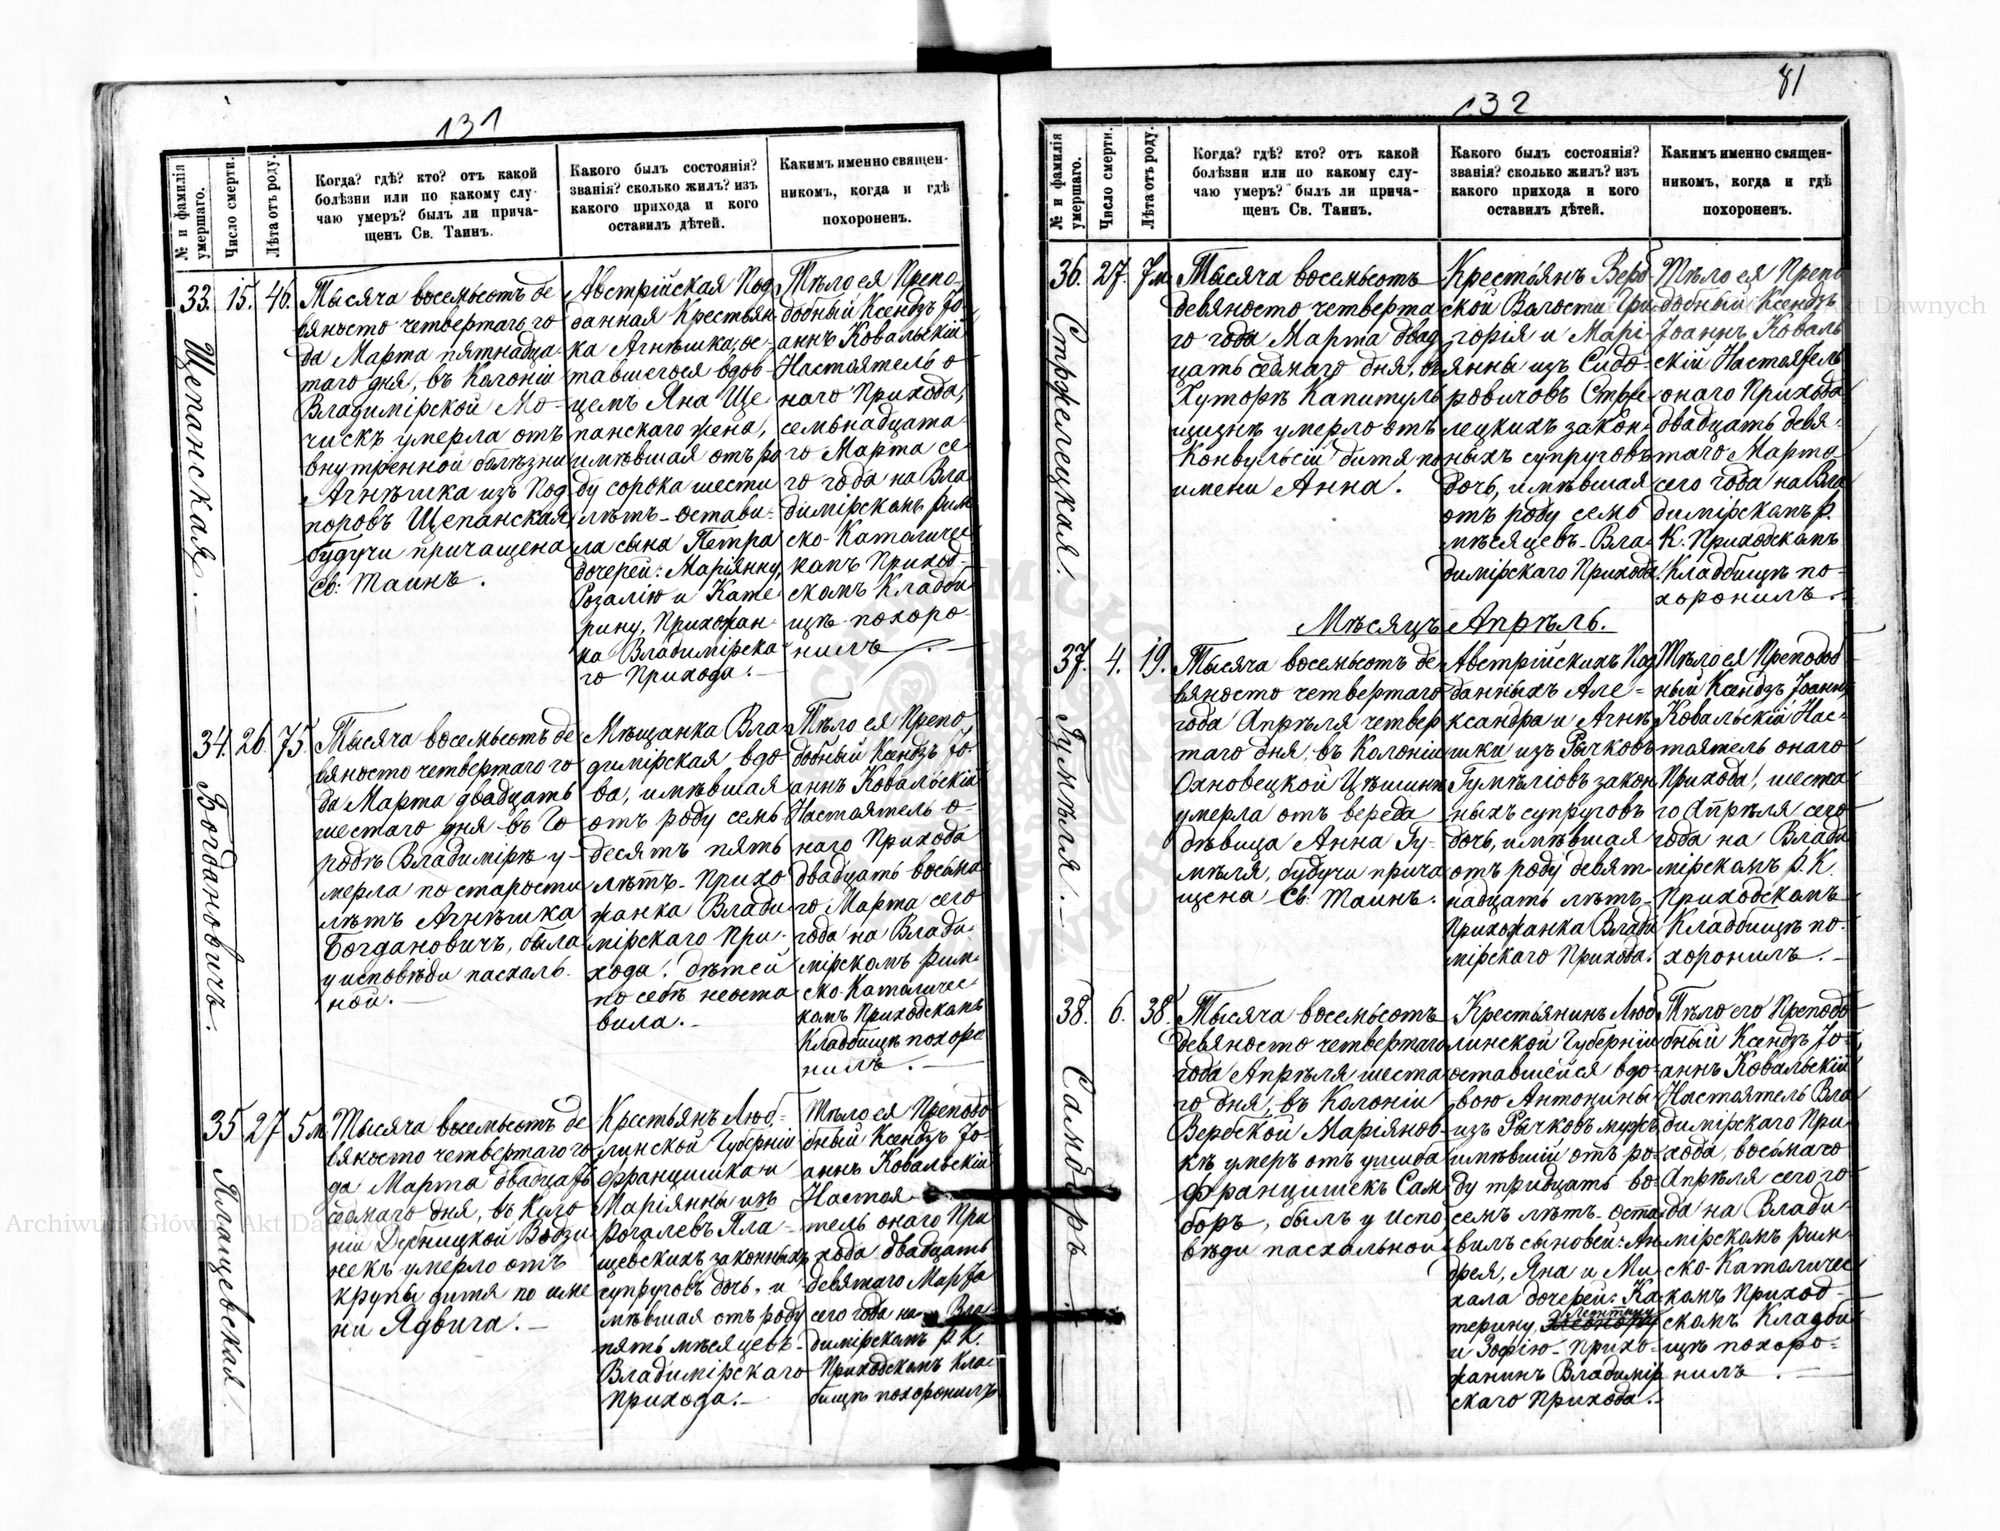 131
№ и фамилія умершаго.
Число смерти.
Лѣта отъ роду.
Когда? гдѣ? кто? отъ какой
болѣзни или по какому слу-
чаю умеръ? былъ ли прича-
щенъ Св. Таинъ.
Какого былъ состоянія?
званія? сколько жилъ? изъ
какого прихода и кого
оставилъ дѣтей.
Какимъ именно священ-
никомъ, когда и гдѣ
похороненъ.
33.
Щепанская.
15.
46.
Тысяча восемьсотъ де
вяносто четвертаго го
да Марта пятнадца
таго дня, въ Колоніи
Владимірской Мо-
чискъ умерла отъ
внутренной болѣзни
Агнѣшка изъ Под
поровъ Щепанская,
будучи причащена
Св: Таинъ.
Австрійская Под
данная Крестьян
ка Агнѣшка, ос-
тавшегося вдов-
цемъ Яна Ще
панскаго жена,
имѣвшая отъ ро
ду сорока шести
лѣтъ - остави-
ла сына Петра
дочерей: Маріянну,
Розалію и Кате
рину, Прихожан-
ка Владимірска-
го Прихода.
Тѣло ея Препо
добный Ксендзъ Іо-
аннъ Ковальскій
Настоятель о
наго Прихода,
семьнадцата-
го Марта се
го года на Вла
димірскомъ Рим
ско-Католичес
комъ Приход-
скомъ Кладби
щѣ похоро
нилъ.
34.
Богдановичъ.
26.
75.
Тысяча восемьсотъ де
вяносто четвертаго го
да Марта двадцать
шестаго дня въ Го
родѣ Владимірѣ у-
мерла по старости
лѣтъ Агнѣшка
Богдановичъ, была
у исповѣди пасхаль-
ной.
Мѣщанка Вла
димірская вдо
ва, имѣвшая
отъ роду семь
десятъ пять
лѣтъ - Прихо
жанка Влади
мірскаго При-
хода. Дѣтей
по себѣ неоста
вила.
Тѣло ея Препо
добный Ксендзъ Іо
аннъ Ковальскій
Настоятель о-
наго Прихода
двадцать восьма
го Марта сего
года на Влади-
мірскомъ Рим-
ско-Католичес-
комъ Приходскомъ
Кладбищѣ похоро
нилъ.
35
27
5 м
Тысяча восемьсотъ де
вяносто четвертаго го
да Марта двадцать
седмаго дня, въ Коло
ніи
некъ умерло отъ
крупы дитя по име
ни Ядвига.
Крестьянъ Люб-
линской Губерніи
Францишка и
Маріянны изъ
щевскихъ законныхъ
супруговъ дочь, и
мѣвшая отъ роду
пять мѣсяцевъ -
Владимірскаго
Прихода.
Тѣло ея Преподо
бный Ксендзъ Іо-
аннъ Ковальскій
Настоя-
тель онаго При
хода двадцать
девятаго Марта
сего года на Вла-
димірскомъ Р. К.
Приходскомъ Кла-
бищѣ похоронилъ
81
132
№ и фамилія умершаго.
Число смерти.
Лѣта отъ роду.
Когда? гдѣ? кто? отъ какой
болѣзни или по какому слу-
чаю умеръ? былъ ли прича-
щенъ Св. Таинъ.
Какого былъ состоянія?
званія? сколько жилъ? изъ
какого прихода и кого
оставилъ дѣтей.
Какимъ именно священ-
никомъ, когда и гдѣ
похороненъ.
36.
Стржелецкая.
27.
7 м
Тысяча восемьсотъ
девяносто четверта
го года Марта двад
цать седмаго дня, въ
Хуторѣ Капитуль
щизнѣ умерло отъ
Конвульсій дитя по
имени Анна.
Крестьянъ Верб
ской Волости Гри
горія и Марі-
янны изъ Сидо-
ровичовъ Стрже
лецкихъ закон-
ныхъ супруговъ
дочь, имѣвшая
отъ роду семь
мѣсяцевъ - Вла-
димірскаго Прихода.
Тѣло ея Препо
добный Ксендзъ
Іоаннъ Коваль
скій Настоятель
онаго Прихода
двадцать девя-
таго Марта
сего года на Вла
димірскомъ Р.
К. Приходскомъ
Кладбищѣ по-
хоронилъ.
Мѣсяцъ Апрѣль.
37.
Гумѣля.
4.
19.
Тысяча восемьсотъ де-
вяносто четвертаго
года Апрѣля четвер
таго дня, въ Колоніи
Охновецкой Цѣшинъ
умерла отъ вереда
дѣвица Анна Гу-
мѣля, будучи прича
щена Св: Таинъ.
Австрійскихъ Под
данныхъ Але-
ксандра и Агнѣ
шки изъ Рычковъ
Гумѣлювъ закон
ныхъ супруговъ
дочь, имѣвшая
отъ роду девят-
надцать лѣтъ -
Прихожанка Влади
мірскаго Прихода.
Тѣло ея Преподоб
ный Ксендзъ Іоаннъ
Ковальскій Нас-
тоятель онаго
Прихода, шеста
го Апрѣля сего
года на Влади
мірскомъ Р. К.
Приходскомъ
Кладбищѣ по-
хоронилъ.
38.
Самборъ.
6.
38.
Тысяча восемьсотъ
девяносто четвертаго
года Апрѣля шеста
го дня, въ Колоніи
Вербской Маріянов-
кѣ умеръ отъ ушиба
Францишекъ Сам
боръ, былъ у испо
вѣди пасхальной.
Крестьянинъ Люб
линской Губерніи
оставшейся вдо-
вою Антонины
изъ Рычковъ мужъ
имѣвшій отъ ро-
ду тридцать во-
семъ лѣтъ - оста
вилъ сыновей: Ан
дрея, Яна и Ми
хала дочерей: Ка
терину,
и Зофію - Прихо-
жанинъ Владимір
скаго Прихода.
Тѣло его Преподо
бный Ксендзъ Іо-
аннъ Ковальскій
Настоятель Вла
димірскаго При-
хода, восьмаго
Апрѣля сего го-
да на Влади-
мірскомъ Рим-
ско-Католичес
комъ Приход-
скомъ Кладби
щѣ похоро-
нилъ.
Archiwum Główne Akt Dawnych